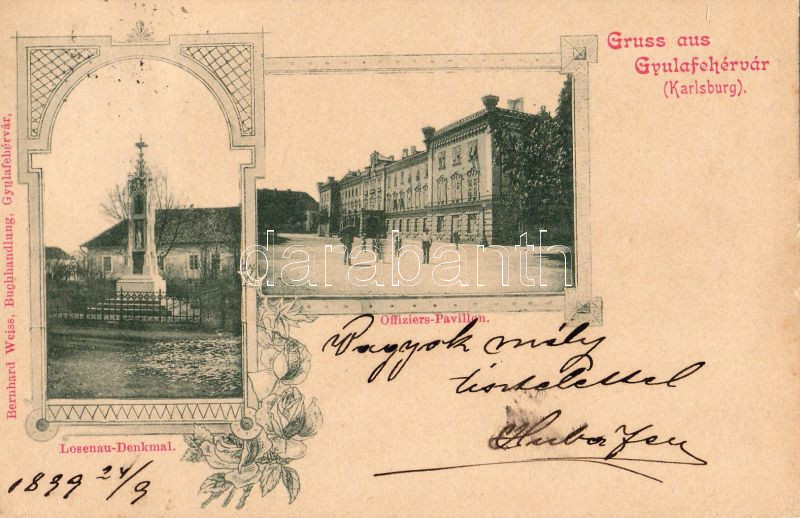 Gruss aus
Gyulafehérvár
(Karlsburg).
Bernhard Weiss, Buchhandlung, Gyulafehérvár,
darabanth
Offiziers-Pavillon.
Losenau-Denkmal.
Vagyok mély
tisztelettel
1899 24/9